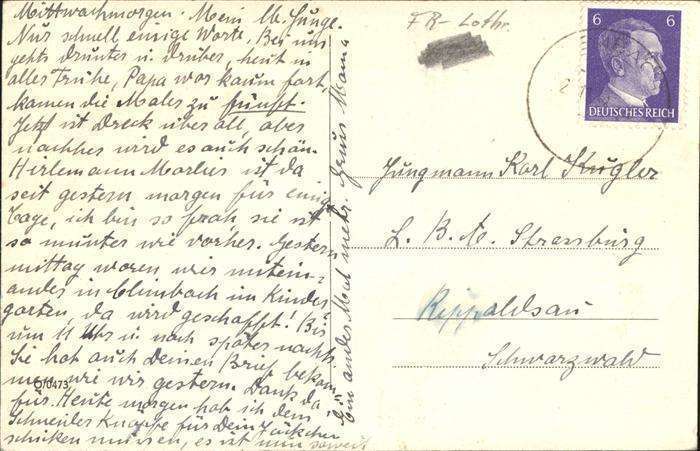 Mittwochmorgen. Mein lb. Junge.
Nur schnell einige Worte. Bei uns
gehts drunter u. drüber, heut in
aller Frühe, Papa war kaum fort
kamen die Maler zu fünft.
Jetzt ist Dreck über all, aber
nachher wird es auch schön.
Hirlemann Marlies ist da
seit gestern morgen für einige
Tage, ich bin so froh, sie ist
so munter wie vorher. Gestern
mittag waren wir mitein-
ander in Climbach im Kinder
garten, da wird geschafft! Bis
um 11 Uhr u. noch später nachts
Sie hat auch Deinen Brief bekom
men wie wir gestern. Dank da
für. Heute morgen hab ich dem
Schneider Knöpfe für dein Jäckchen
schicken müssen, es ist nun soweit
Ein ander Mal mehr. Gruss Mama
O/0473
FR-Lothr.
6 6
DEUTSCHES REICH
Jungmann Karl Kugler
L. B. A. Strassburg
Rippoldsau
Schwarzwald